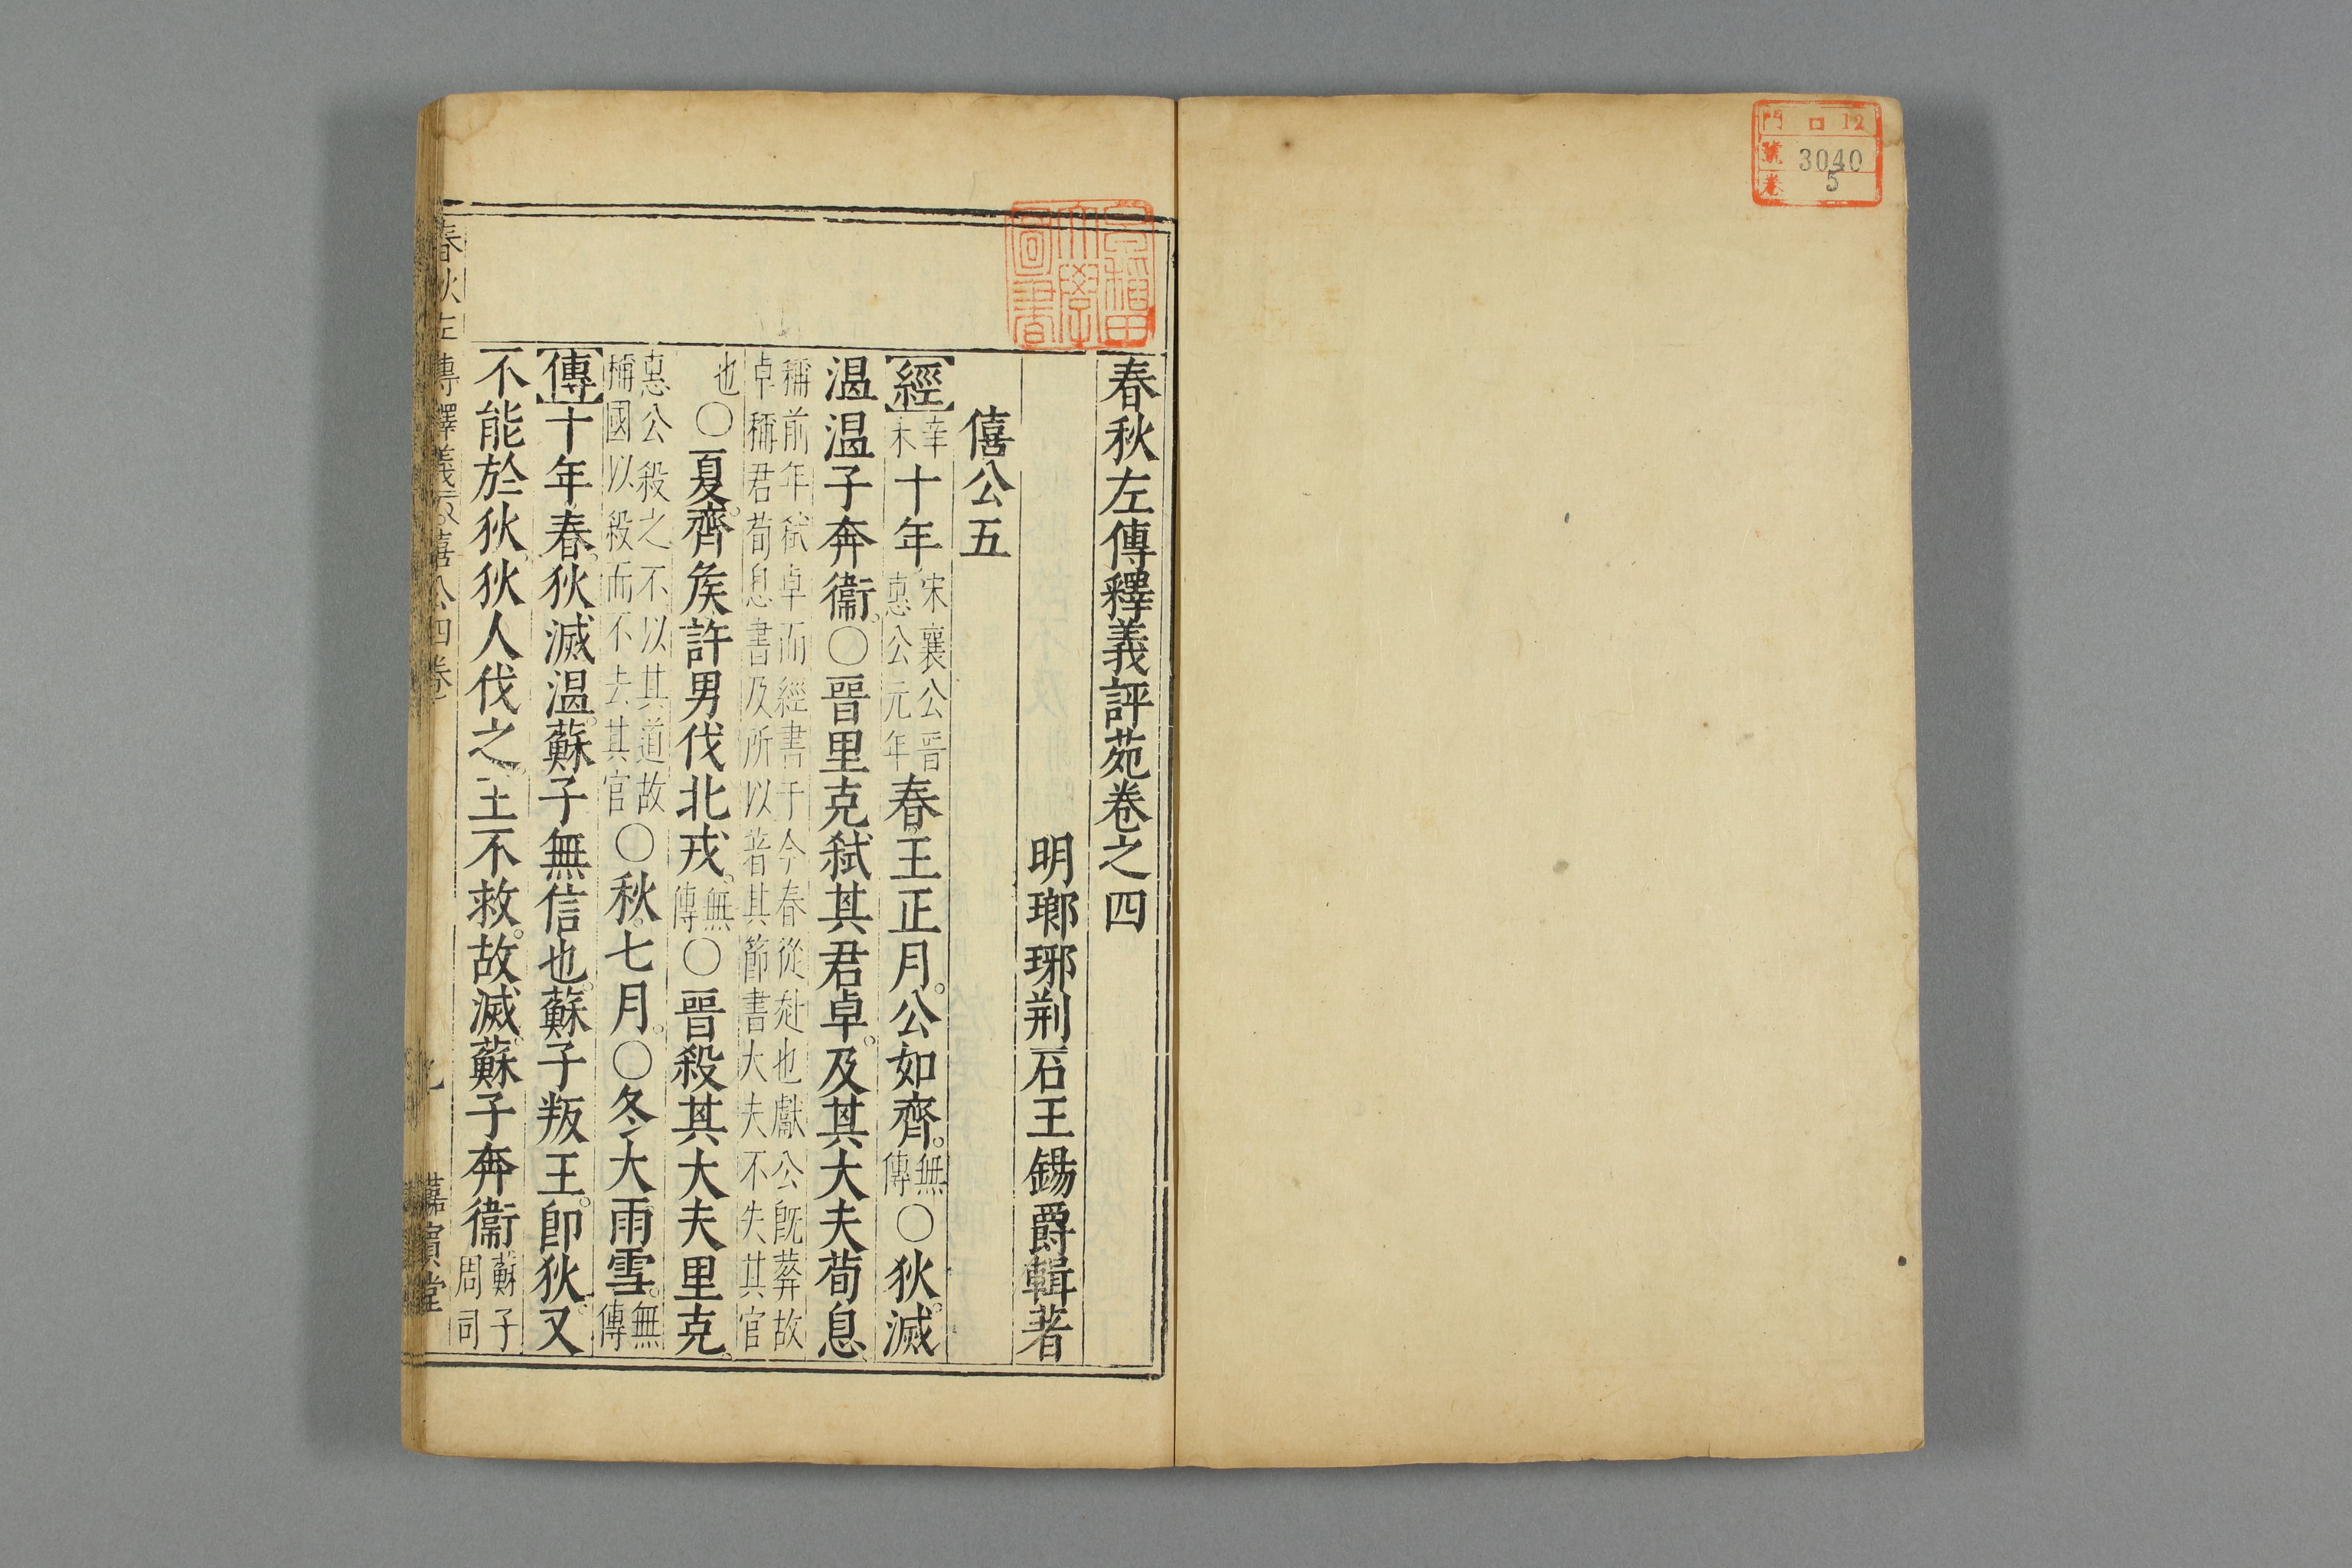 門 口12
號 3040
卷 5
早稲田大學圖書
春秋左傳釋義評苑卷之四
明瑯琊荆石王錫爵輯著
僖公五
經辛未十年宋襄公晉惠公元年春王正月。公如齊。無傳○狄滅
温温子奔衞。○晉里克弑其君卓。及其大夫荀息。
稱前年弑卓而經書于今春從赴也獻公旣葬故
卓稱君荀息書及所以著其節書大夫不失其官
也○夏齊矦許男伐北戎。無傳○晉殺其大夫里克。
惠公殺之不以其道故
稱國以殺而不去其官○秋。七月。○冬大雨雪。無傳
傳十年春。狄滅温。蘇子無信也。蘇子叛王。卽狄。又
不能於狄。狄人伐之。王不救。故滅。蘇子奔衞蘇子周司
春秋左傳釋義評苑僖公四卷